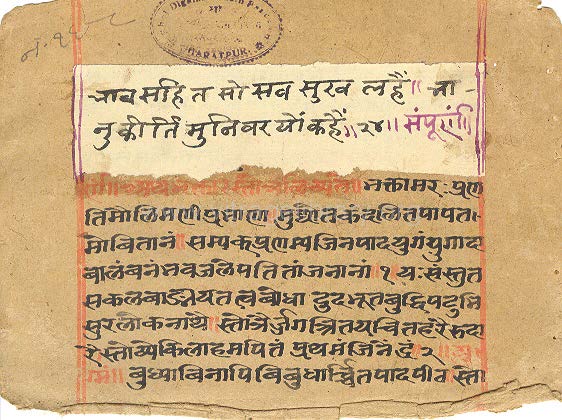 BHARATPUR
भाव सहित सो सब सुख लहैं॥ भा-
नुकीर्ति मुनिवर यों कहैं॥ २४॥ संपूर्ण॥
भक्तामर प्रण
तिमौलिमणीप्रभाणा मुद्योतकंदलितपापत
मोवितानं सम्यक्प्रणम्यजिनपादयुगंयुगाद
बालंबनंभवजलेपतितांजनानां १ यः संस्तुत
सकलवाङ्मयतत्वबोधा दुद्भूतबुद्धिपटुभि
सुरलोकनाथै स्तोत्रैर्जगत्रितयचित्तहरैरुदा
रै स्तोष्येकिलाहमपितं प्रथमंजिनेंद्रं २
बुध्याविनापिविबुधार्च्चितपादपीठ स्तो